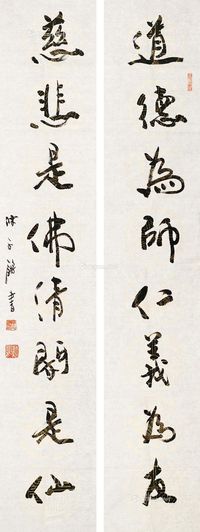 道德為師仁義為友
慈悲是佛清閑是仙